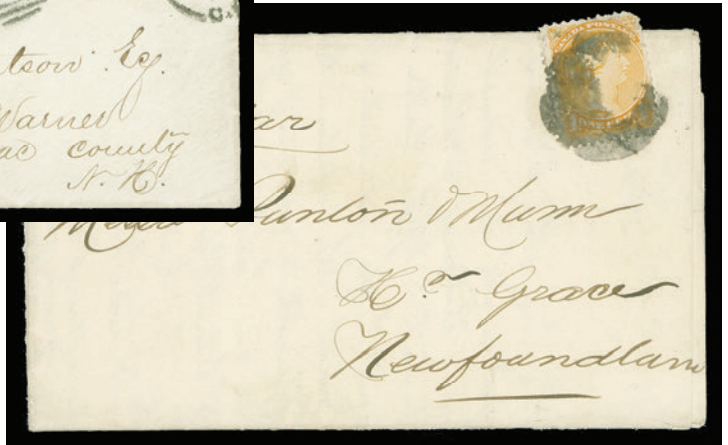 tson Esq.
Warner
ac county
N. H.
ar
Messrs Punton & Munn
Hr. Grace
Newfoundlan